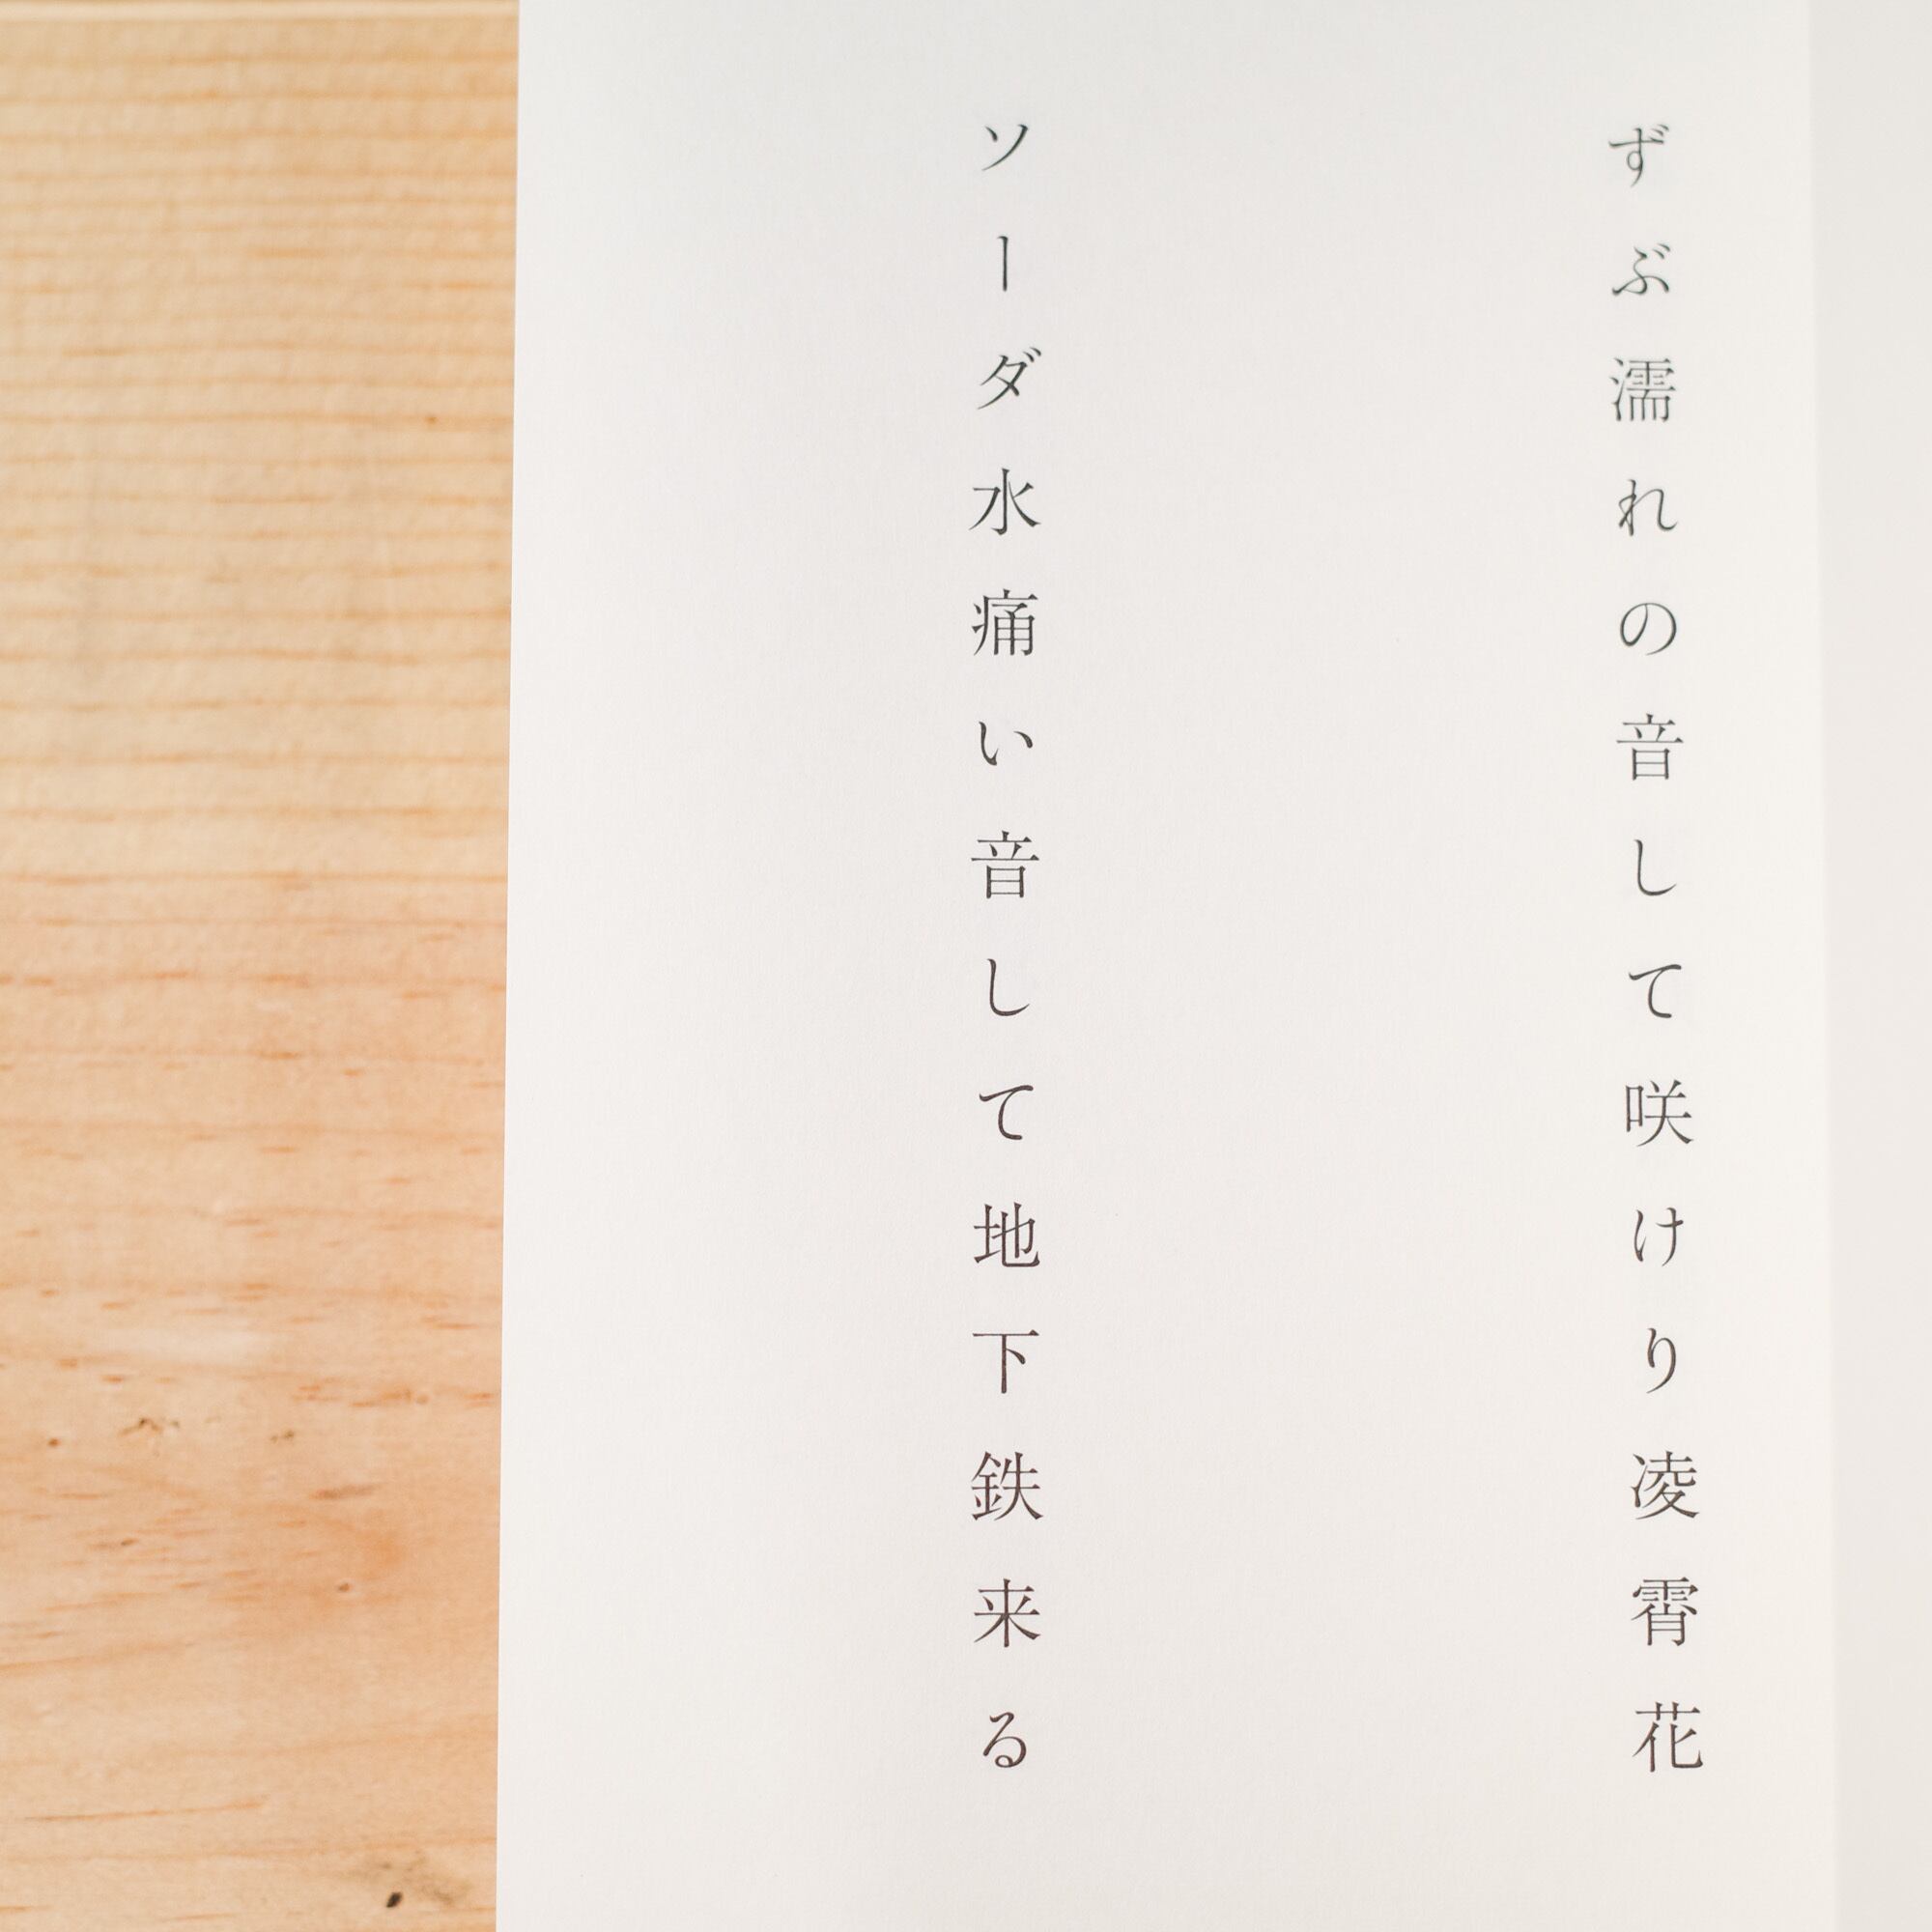 ずぶ濡れの音して咲けり凌霄花
ソーダ水痛い音して地下鉄来る